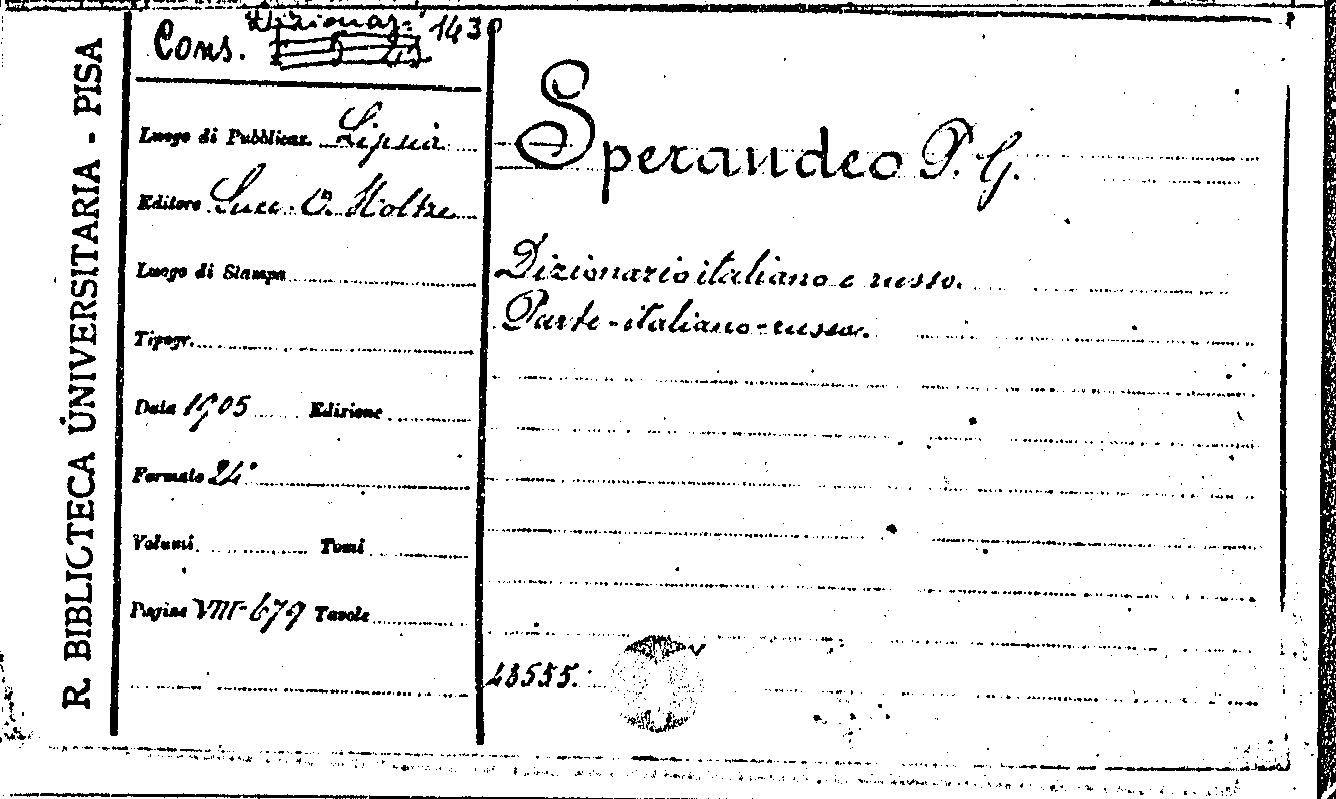 R. BIBLIOTECA UNIVERSITARIA - PISA
Cons. Dizionar. 1430
Luogo di Pubblicaz. Lipsia
Editore Succ. O. Holtze
Luogo di Stampa
Tipogr.
Data 1905 Edizione
Formato 24°
Volumi Tomi
Pagine VIII-679 Tavole
Sperandeo P. G.
Dizionario italiano e russo.
Parte-italiano-russa.
18555.